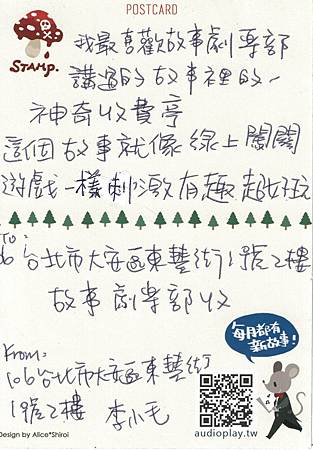 POSTCARD
STAMP.
我最喜歡故事劇樂部
講過的故事裡的
神奇收費亭
這個故事就像線上闖關
遊戲一樣刺激有趣超好玩
To:
106台北市大安區東豐街1號2樓
故事劇樂部收
每月都有
新故事!
From:
106台北市大安區東豐街
1號2樓 李小毛
Design by Alice*Shiroi
audioplay.tw